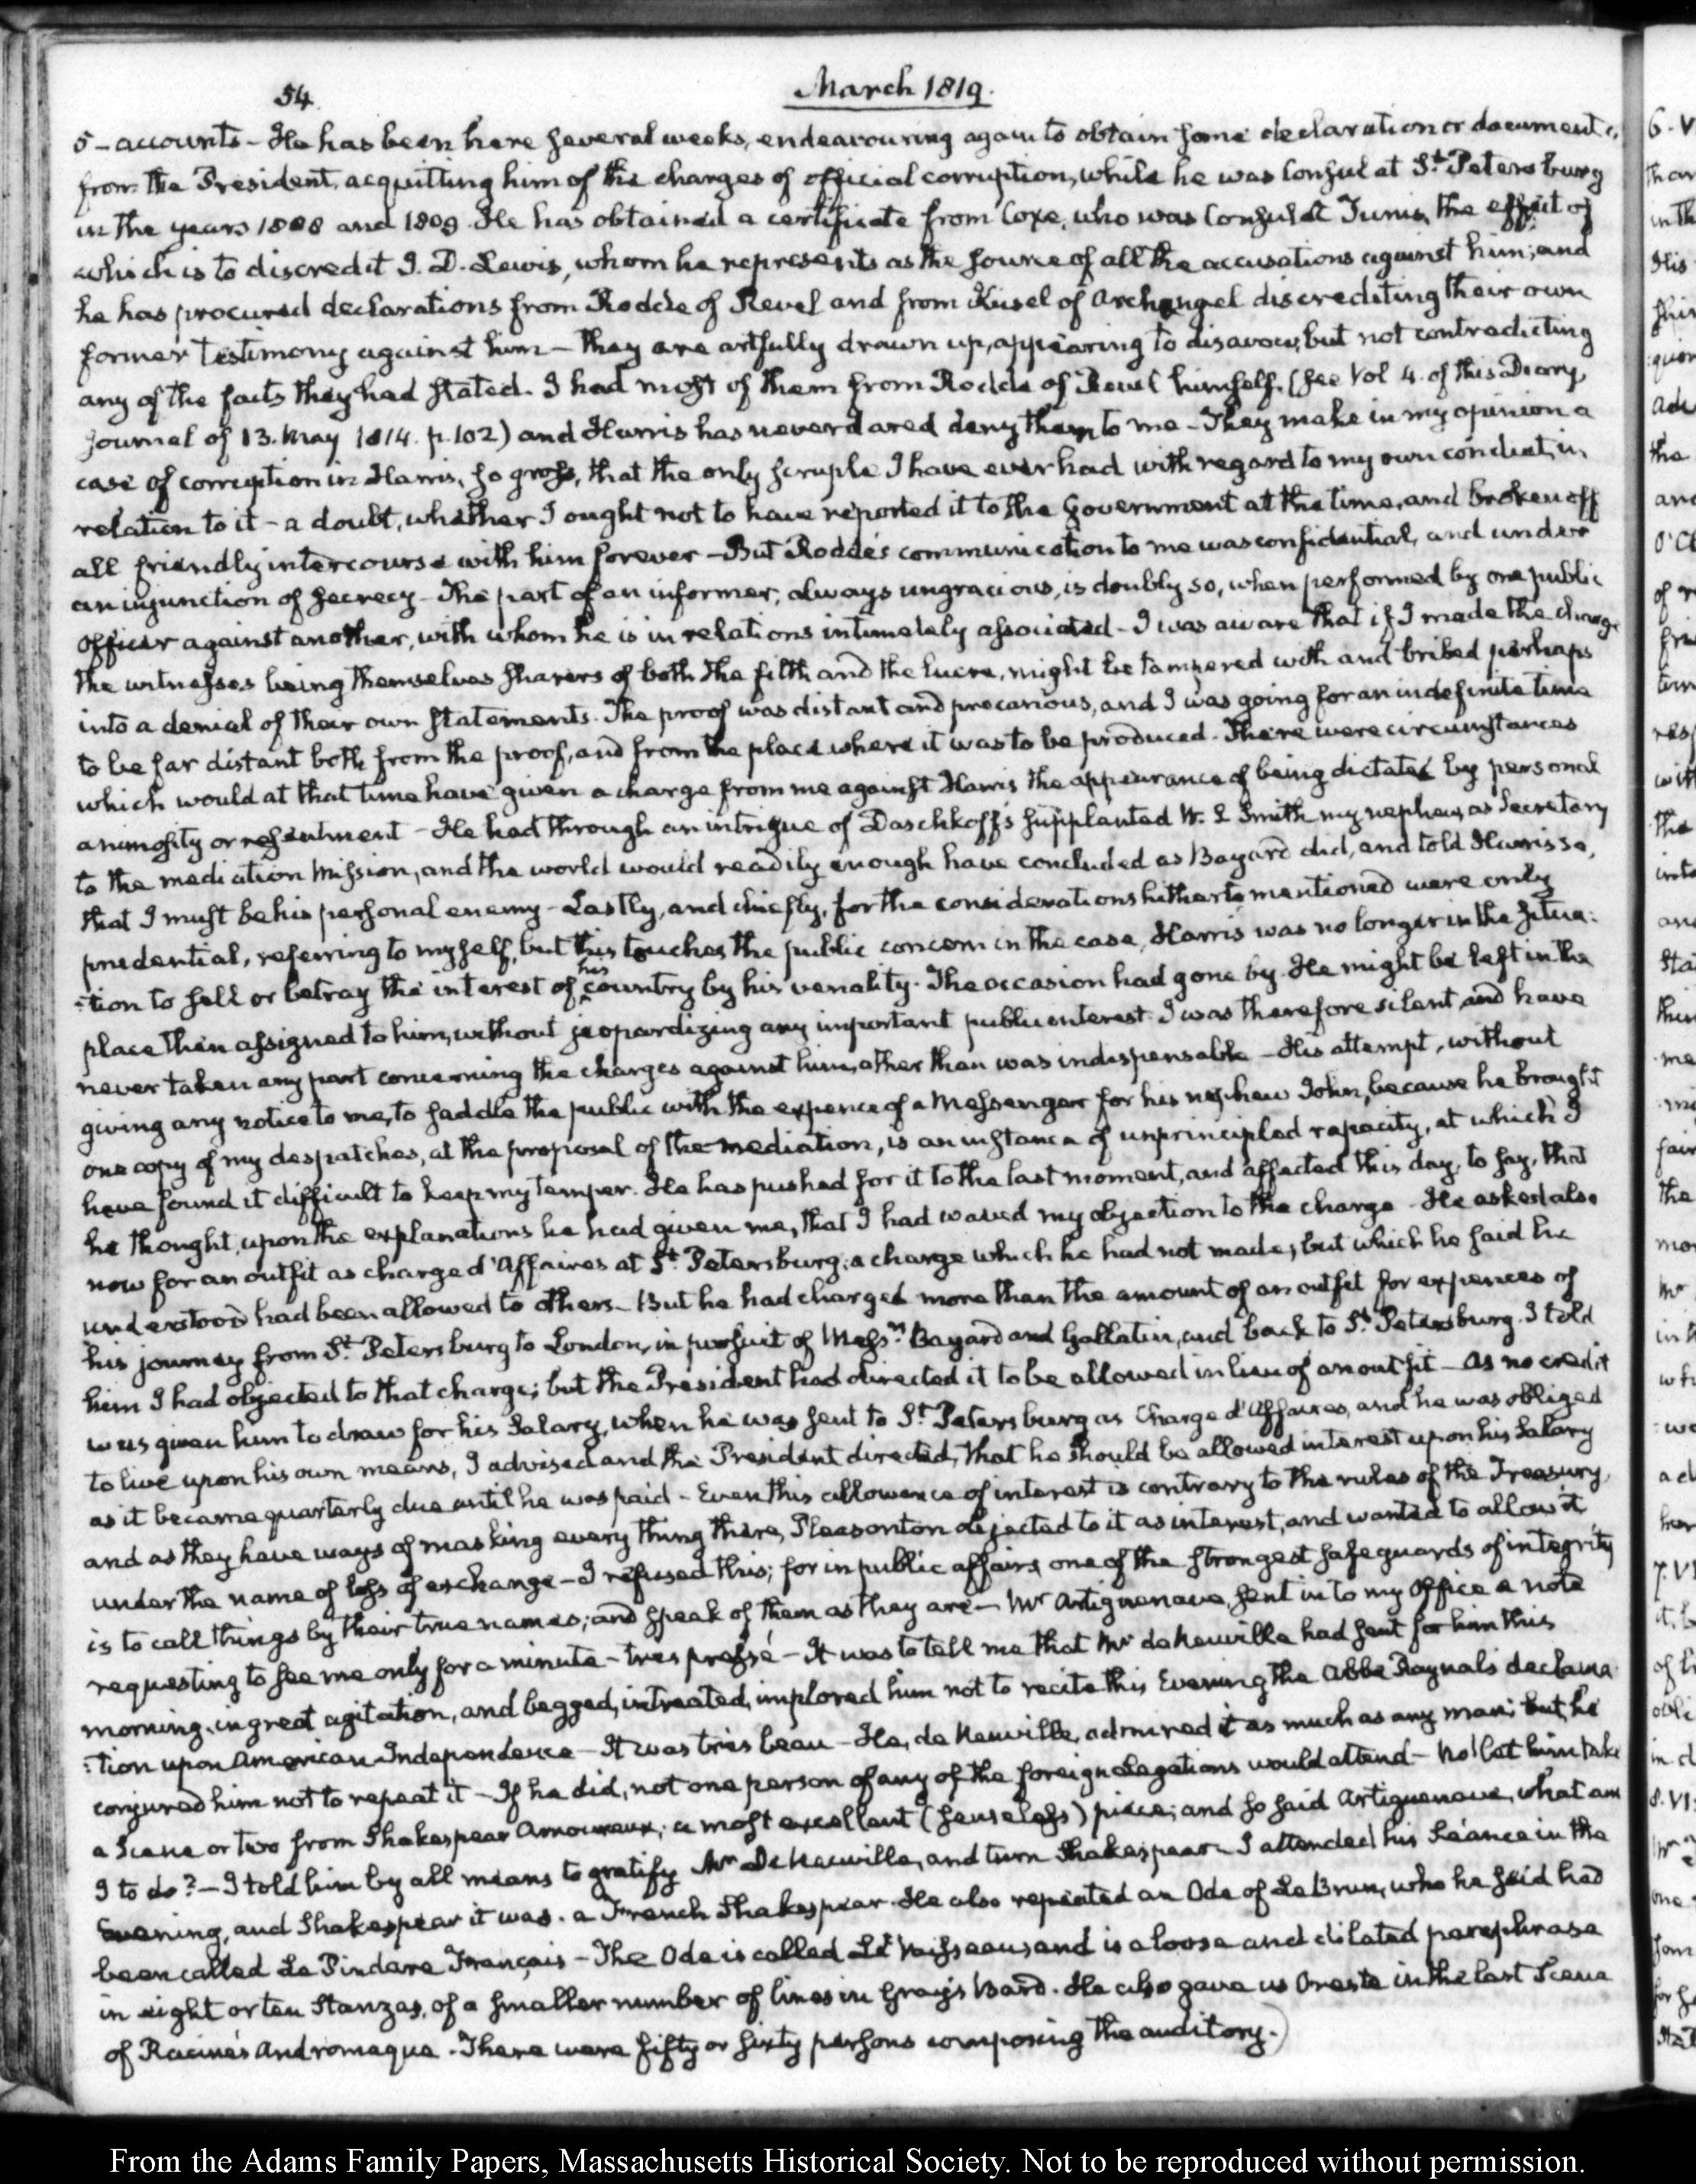 54
March 1819.
5 - accounts - He has been here several weeks, endeavouring again to obtain some declaration or document,
from the President, acquitting him of the charges of official corruption, while he was Consul at St. Petersburg
in the years 1808 and 1809. He has obtained a certificate from Coxe, who was Consul at Tunis, the effect of
which is to discredit J. D. Lewis, whom he represents as the source of all the accusations against him; and
he has procured declarations from Rodde of Revel and from Kusel of Archangel discrediting their own
former testimony against him - they are artfully drawn up, appearing to disavow, but not contradicting
any of the facts they had stated. I had most of them from Rodde of Revel himself. (See Vol 4. of this Diary,
journal of 13. May 1814. p. 102) and Harris has never dared deny them to me - They make in my opinion a
case of corruption in Harris, so gross, that the only scruple I have ever had with regard to my own conduct in
relation to it - a doubt, whether I ought not to have reported it to the Government at the time, and broken off
all friendly intercourse with him forever - But Rodde's communication to me was confidential, and under
an injunction of secrecy - The part of an informer, always ungracious, is doubly so, when performed by one public
officer against another, with whom he is in relations intimately associated - I was aware that if I made the charge
the witnesses being themselves sharers of both the filth and the lucre, might be tampered with and bribed perhaps
into a denial of their own statements. The proof was distant and precarious, and I was going for an indefinite time
to be far distant both from the proof, and from the place where it was to be produced. There were circumstances
which would at that time have given a charge from me against Harris the appearance of being dictated by personal
animosity or resentment - He had through an intrigue of Daschkoff's supplanted W. S. Smith my nephew, as Secretary
to the mediation Mission, and the world would readily enough have concluded as Bayard did, and told Harris so,
that I must be his personal enemy - Lastly, and chiefly, for the considerations hitherto mentioned were only
prudential, referring to myself, but this touches the public concern in the case, Harris was no longer in the situa-
-tion to sell or betray the interest of his country by his venality. The occasion had gone by. He might be left in the
place then assigned to him, without jeopardizing any important public interest. I was therefore silent, and have
never taken any part concerning the charges against him, other than was indispensable - His attempt, without
giving any notice to me, to saddle the public with the expence of a Messenger for his nephew John, because he brought
one copy of my despatches, at the proposal of the mediation, is an instance of unprincipled rapacity, at which I
have found it difficult to keep my temper. He has pushed for it to the last moment, and affected this day, to say, that
he thought, upon the explanations he had given me, that I had waved my objection to the charge - He asked also
now for an outfit as charge d'Affaires at St. Petersburg; a charge which he had not made, but which he said he
understood had been allowed to others - But he had charged more than the amount of an outfit for expences of
his journey from St. Petersburg to London, in pursuit of Messrs. Bayard and Gallatin, and back to St. Petersburg. I told
him I had objected to that charge; but the President had directed it to be allowed in lieu of an outfit - As no credit
was given him to draw for his Salary, when he was sent to St. Petersburg as Charge d'Affaires, and he was obliged
to live upon his own means, I advised and the President directed, that he should be allowed interest upon his Salary
as it became quarterly due until he was paid - Even this allowance of interest is contrary to the rules of the Treasury,
and as they have ways of masking every thing there, Pleasonton objected to it as interest, and wanted to allow it
under the name of loss of exchange - I refused this; for in public affairs, one of the strongest safeguards of integrity
is to call things by their true names; and speak of them as they are - Mr Artiguenave, sent in to my Office a note
requesting to see me only for a minute - très pressé - It was to tell me that Mr de Neuville had sent for him this
morning, in great agitation, and begged, intreated, implored him not to recite this Evening the Abbe Raynal's declama-
-tion upon American Independence - It was très beau - He, de Neuville, admired it as much as any man; but he
conjured him not to repeat it - If he did, not one person of any of the foreign Legations would attend - No! let him take
a Scene or two from Shakespear Amoureux; a most excellent (senseless) piece; and so said Artiguenave, what am
I to do? - I told him by all means to gratify Mr De Neuville, and turn Shakespear. I attended his Séance in the
Evening, and Shakespear it was. a French Shakespear. He also repeated an Ode of Le Brun, who he said had
been called Le Pindare Français - The Ode is called Le Vaisseau, and is a loose and dilated paraphrase
in eight or ten Stanzas, of a smaller number of lines in Gray's Bard. He also gave us Oreste in the last Scene
of Racine's Andromaque. There were fifty or sixty persons composing the auditory.
From the Adams Family Papers, Massachusetts Historical Society. Not to be reproduced without permission.